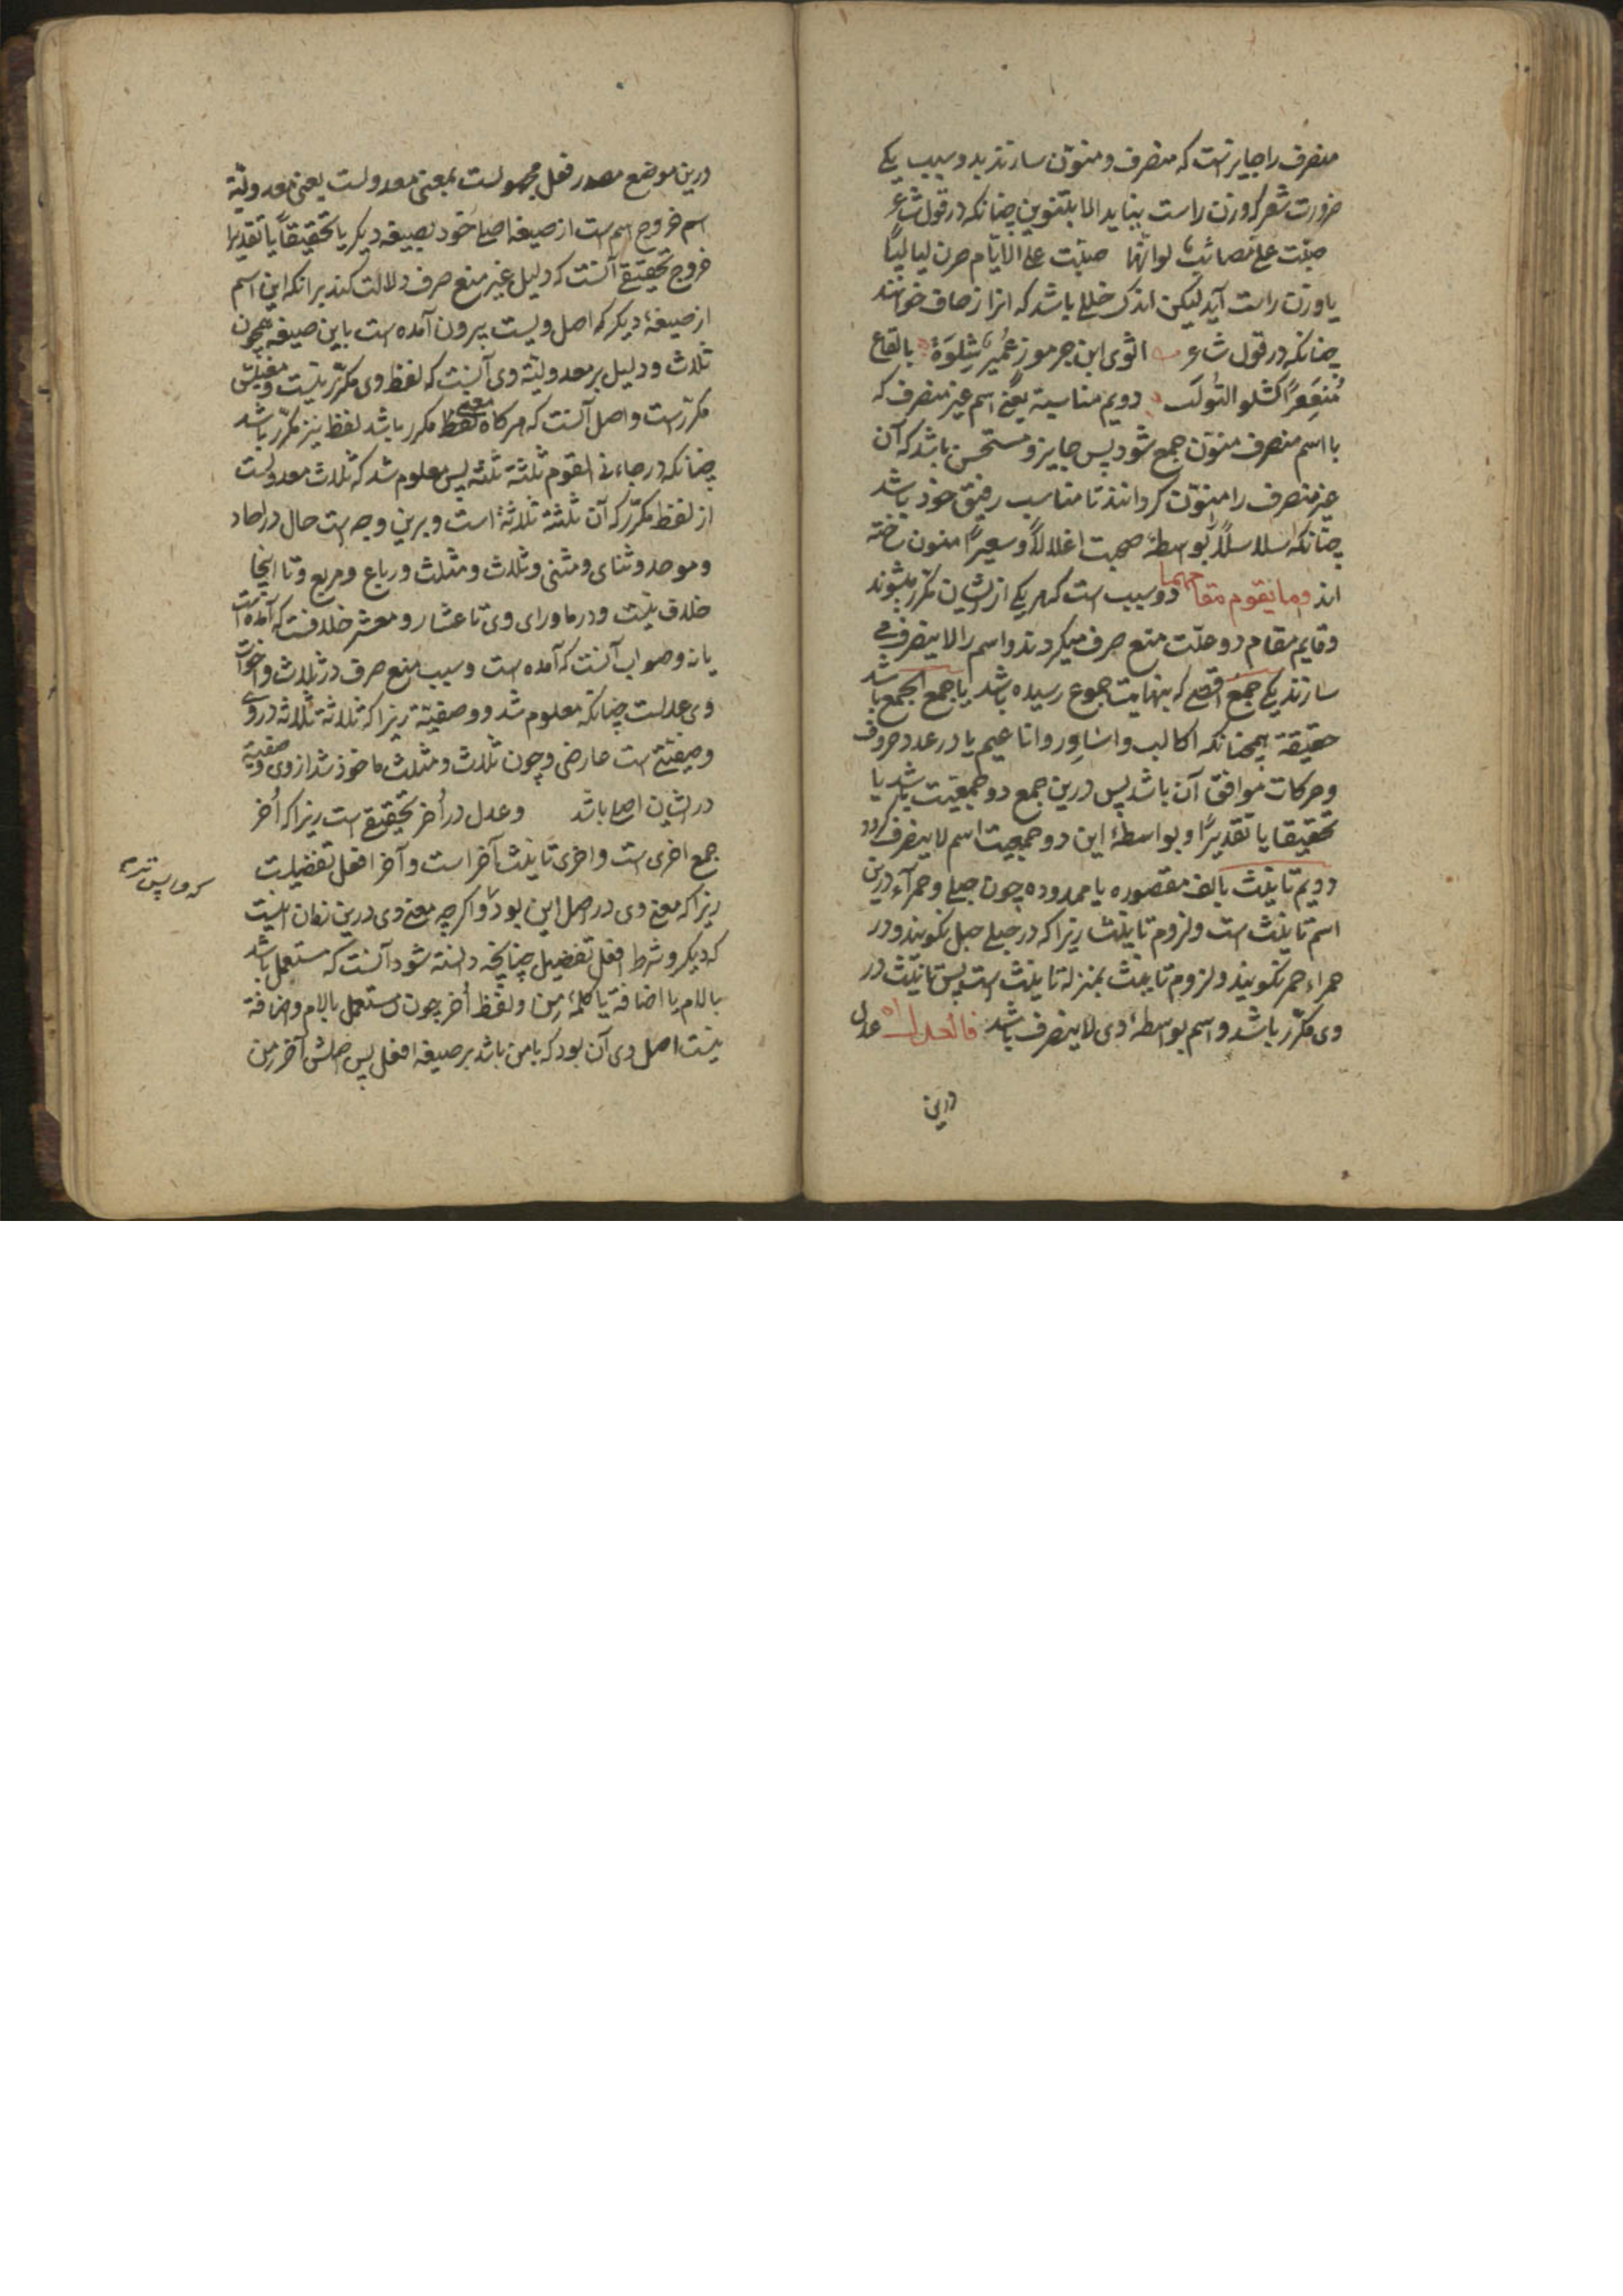 منصرف را جایزست که منصرف و منوّن سازند بدو سبب یکے
ضرورت شعر که وزن راست بیناید الا بتنوین چنانکه در قول شاعر
صبّت علیّ مصائبٌ لو انّها صبّت علی الایّام صرن لیالیًا
یا وزن راست آید لیکن اندک خللے باشد که انرا زحاف خوانند
چنانکه در قول شاعر اثوی ابن جرموز عُمَیر شِلوَهُ بالقاع
مُنعَفِرًا کشلو التولب دویم مناسبة یعنے اسم غیر منصرف که
با اسم منصرف منوّن جمع شود پس جایز و مستحسن باشد که آن
غیر منصرف را منوّن کردانند تا مناسب رفیق خود باشد
چنانکه سلاسلاً بواسطهٔ صحبت اغلالاً وسعیراً منون ساخته
اند وما یقوم مقامهما دو سبب است که هر یکے از ایشان مکرر میشوند
و قایم مقام دو علّت منع صرف میکردند و اسم را لا ینصرف مے
سازند یکے جمع اقصے که بنهایت جموع رسیده باشد یا جمع الجمع باشد
حقیقة همچنانکه اکالب و اساور و اناعیم یا در عدد حروف
و حرکات موافق آن باشد پس درین جمع دو جمعیت باشد یا
تحقیقا یا تقدیرًا و بواسطهٔ این دو جمعیت اسم لا ینصرف کردد
دویم تانیث بالف مقصوره یا ممدوده چون حبلے و حمرآء درین
اسم تانیث است و لزوم تانیث زیرا که در حبلے حبل نکویند و در
حمراء حمر نکویند و لزوم تانیث بمنزلهٔ تانیث است پس تانیث در
وی مکرّر باشد و اسم بواسطهٔ وی لا ینصرف باشد فالعدل اه عدل
درین
درین موضع مصدر فعل مجهولست بمعنی معدولست یعنی معدولیّة
اسم خروج اسم است از صیغهٔ اصلے خود بصیغه دیکر یا تحقیقاً یا تقدیرا
خروج تحقیقے آنست که دلیل غیر منع صرف دلالت کند برانکه این اسم
از صیغهٔ دیکر که اصل ویست بیرون آمده است باین صیغه همچون
ثلاث و دلیل بر معدولیّة وی آنست که لفظ وی مکرّر نیست و معنیش
مکرّرست و اصل آنست که هرکاه معنے لفظ مکرر باشد لفظ نیز مکرّر باشد
چنانکه در جاءنی القوم ثلثة ثلثة پس معلوم شد که ثلاث معدولست
از لفظ مکرّر که آن ثلثة ثلاثة است و برین وجه است حال در احاد
و موحد و ثنای و مثنی و ثلاث و مثلث و رباع و مربع و تا اینجا
خلاف نیست و در ماورای وی تا عشار و معشر خلافست که آمده است
یا نه و صواب آنست که آمده است و سبب منع صرف در ثلاث و اخوات
وی عدلست چنانکه معلوم شد و وصفیّة زیرا که ثلاثة ثلاثة در وی
وصفیّتے است عارضی و چون ثلاث و مثلث ماخوذ شد از وی وصفیة
در ایشان اصلے باشد و عدل در اُخر تحقیقے است زیرا که اُخر
جمع اخری است و اخری تانیث آخر است و آخر افعل تفضیلست
زیرا که معنے وی در اصل این بود و اکرچه معنے وی درین زمان اینست
که دیکر و شرط افعل تفضیل چنانچه دانسته شود آنست که مستعمل باشد
باللام یا اضافة یا کلمهٔ مِن و لفظ اُخر چون مستعمل بالام و اضافة
نیست اصل وی آن بود که بامن باشد بر صیغه افعل پس اصلش آخر من